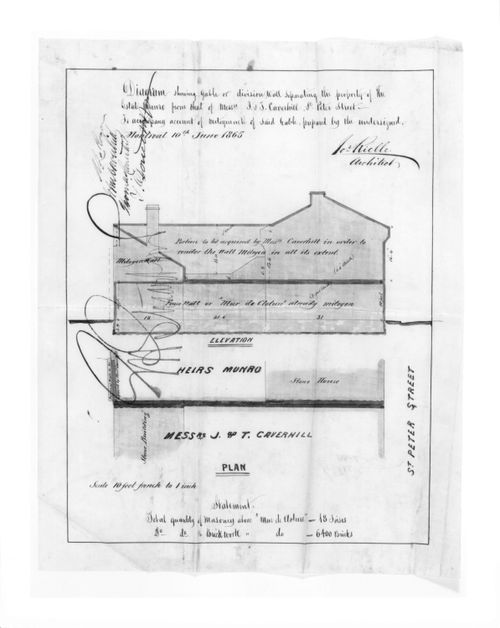 Diagram shewing Gable or division Wall separating the property of the
Estate Munro from that of Messrs J. & T. Caverhill St. Peter Street —
To accompany account of mitoyennete of said Gable, prepared by the undersigned.
Montreal 10th June 1865
Jos Rielle
Architect
Portion to be acquired by Messrs Caverhill in order to
render the Wall Mitoyen in all its extent
Mitoyen Wall
"Mur de Cloture" already mitoyen
12
21.6
31
ELEVATION
HEIRS MUNRO
Stone House
Stone Building
MESSRS J. & T. CAVERHILL
ST PETER STREET
PLAN
Scale 10 feet french to 1 inch
Statement.
Total quantity of Masonry above "Mur de Cloture" — 13 Toises
Do do " Brickwork " do — 6400 Bricks